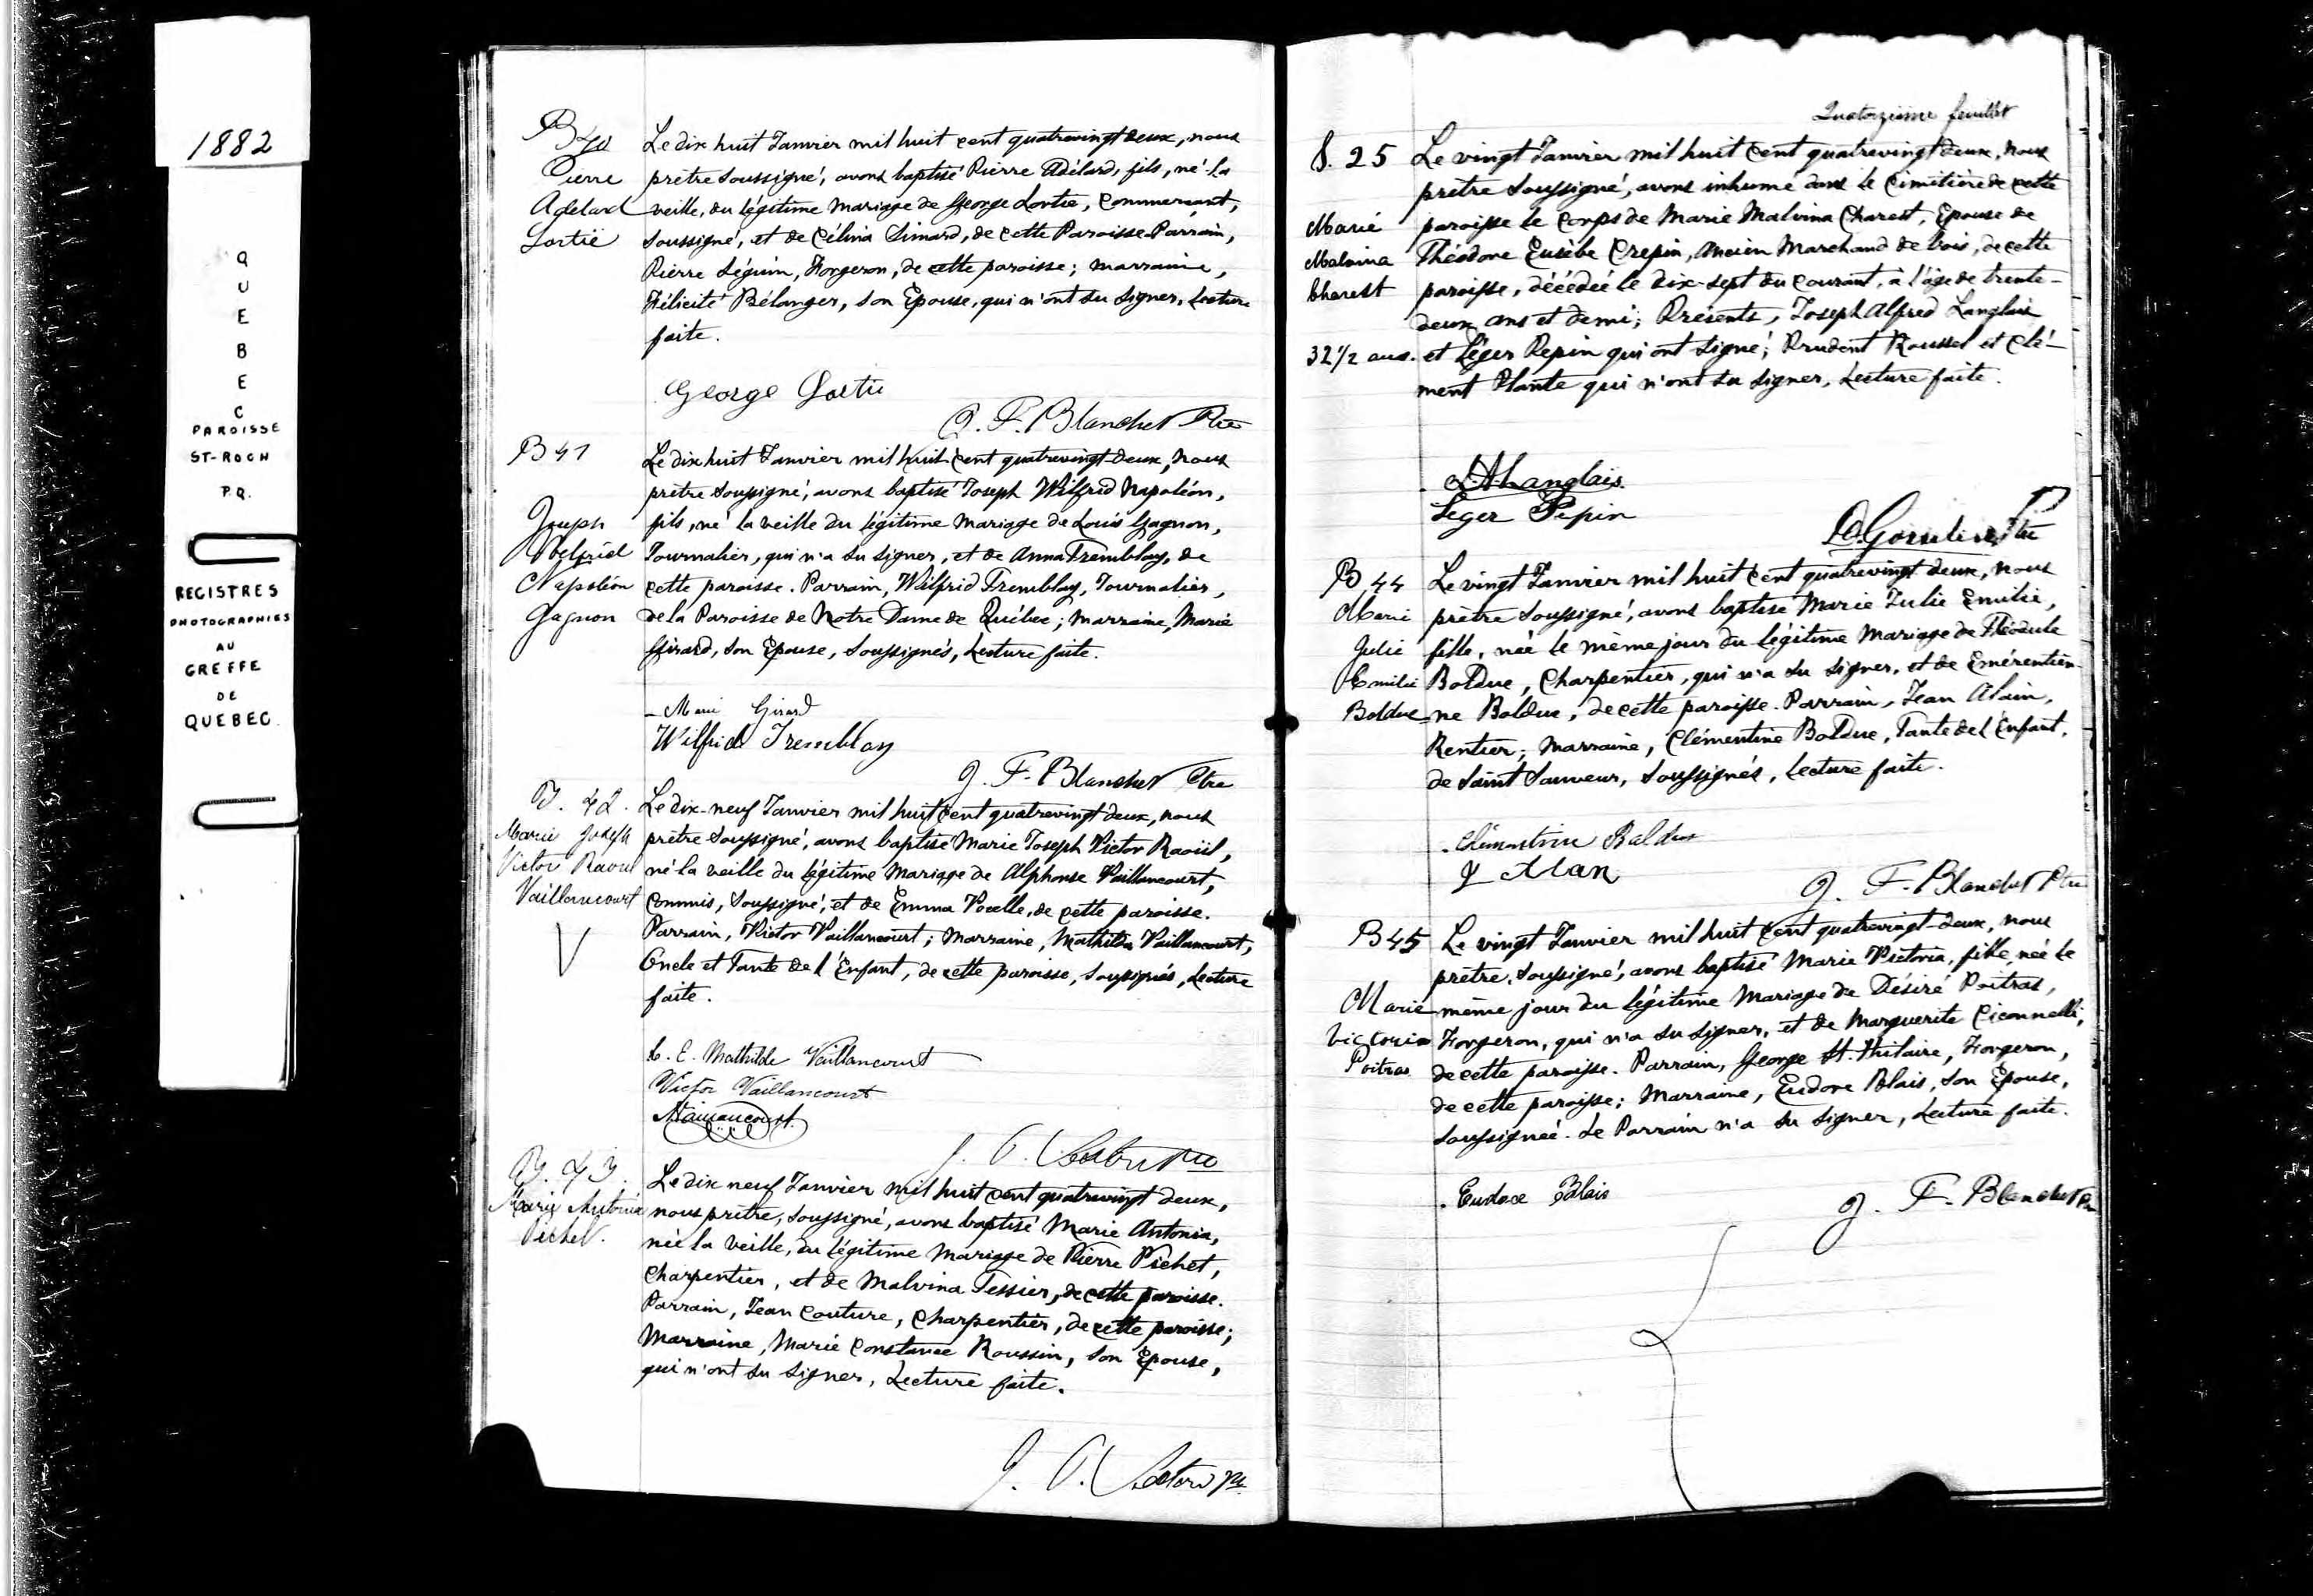 1882
QUEBEC
PAROISSE
ST-ROCH
P.Q.
REGISTRES
PHOTOGRAPHIES
AU
GREFFE
DE
QUEBEC
B 40
Pierre
Adelard
Lortie
Le dix huit Janvier mil huit cent quatrevingt deux, nous
prêtre soussigné, avons baptisé Pierre Adélard, fils, né la
veille, du légitime mariage de George Lortie, Commerçant,
soussigné, et de Célina Simard, de cette Paroisse. Parrain,
Pierre Séguin, Forgeron, de cette paroisse; marraine,
Félicité Bélanger, son Epouse, qui n'ont su signer. Lecture
faite.
George Lortie
J. F. Blanchet Ptre
B 41
Joseph
Wilfrid
Napoléon
Gagnon
Le dix huit Janvier mil huit cent quatrevingt deux, nous
prêtre soussigné, avons baptisé Joseph Wilfrid Napoléon,
fils, né la veille du légitime mariage de Louis Gagnon,
Journalier, qui n'a su signer, et de Anna Tremblay, de
cette paroisse. Parrain, Wilfrid Tremblay, Journalier,
de la Paroisse de Notre Dame de Québec; marraine, Marie
Girard, son Epouse, soussignés, Lecture faite.
Marie Girard
Wilfrid Tremblay
J. F. Blanchet Ptre
B. 42.
Marie Joseph
Victor Raoul
Vaillancourt
V
Le dix-neuf Janvier mil huit cent quatrevingt deux, nous
prêtre soussigné, avons baptisé Marie Joseph Victor Raoül,
né la veille du légitime mariage de Alphonse Vaillancourt,
Commis, soussigné, et de Emma Vocelle, de cette paroisse.
Parrain, Victor Vaillancourt; Marraine, Mathilda Vaillancourt,
Oncle et Tante de l'Enfant, de cette paroisse, soussignés, Lecture
faite.
C. E. Mathilde Vaillancourt
Victor Vaillancourt
AVaillancourt
B. 43.
Marie Antonia
Pichet.
Le dix neuf Janvier mil huit cent quatrevingt deux,
nous prêtre, soussigné, avons baptisé Marie Antonia,
née la veille, du légitime mariage de Pierre Pichet,
Charpentier, et de Malvina Tessier, de cette paroisse.
Parrain, Jean Couture, Charpentier, de cette paroisse;
Marraine, Marie Constance Roussin, son Epouse,
qui n'ont su signer, Lecture faite.
Quatorzième feuillet
S. 25
Marie
Malvina
Charest
32 1/2 ans.
Le vingt Janvier mil huit cent quatrevingt deux, nous
prêtre soussigné, avons inhumé dans le Cimitière de cette
paroisse le corps de Marie Malvina Charest, Epouse de
Théodore Eusèbe Crepin, Ancien Marchand de bois, de cette
paroisse, décédée le dix-sept du courant, à l'âge de trente-
deux ans et demi; Présents, Joseph Alfred Langlais
et Léger Pepin qui ont signé; Prudent Roussel et Clé-
ment Plante qui n'ont su signer, Lecture faite.
JALanglais
Leger Pepin
Ptre
B 44
Marie
Julie
Emilie
Bolduc
Le vingt Janvier mil huit cent quatrevingt deux, nous
prêtre soussigné, avons baptisé Marie Julie Emilie,
fille, née le même jour du légitime mariage de Théodule
Bolduc, Charpentier, qui n'a su signer, et de Emérentien-
ne Bolduc, de cette paroisse. Parrain, Jean Alain,
Rentier; Marraine, Clémentine Bolduc, Tante de l'Enfant,
de Saint Sauveur, soussignés, Lecture faite.
Clémentine Balduc
J Alan
J. F. Blanchet Ptre
B 45
Marie
Victoria
Poitras
Le vingt Janvier mil huit cent quatrevingt-deux, nous
prêtre, soussigné, avons baptisé Marie Victoria, fille, née le
même jour du légitime Mariage de Désiré Poitras,
Forgeron, qui n'a su signer, et de Marguerite Ciconnelli,
de cette paroisse. Parrain, George St. Hilaire, Forgeron,
de cette paroisse; Marraine, Eudoxe Blais, son Epouse,
soussignée. Le Parrain n'a su signer, Lecture faite.
Eudoxe Blais
J. F. Blanchet Ptre